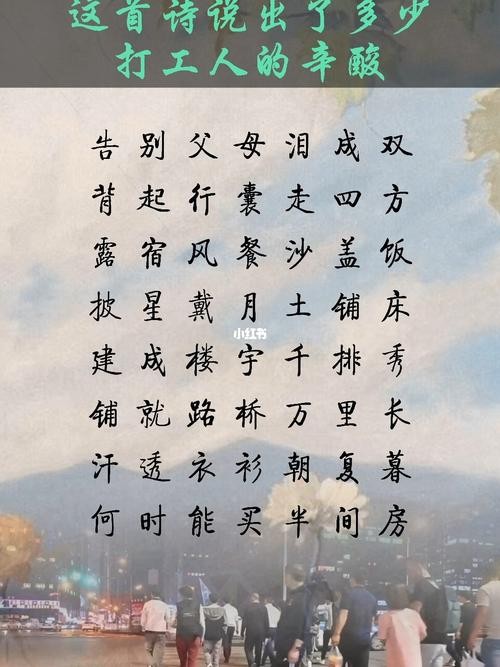 这首诗说出了多少
打工人的辛酸
告别父母泪成双
背起行囊走四方
露宿风餐沙盖饭
披星戴月土铺床
小红书
建成楼宇千排秀
铺就路桥万里长
汗透衣衫朝复暮
何时能买半间房